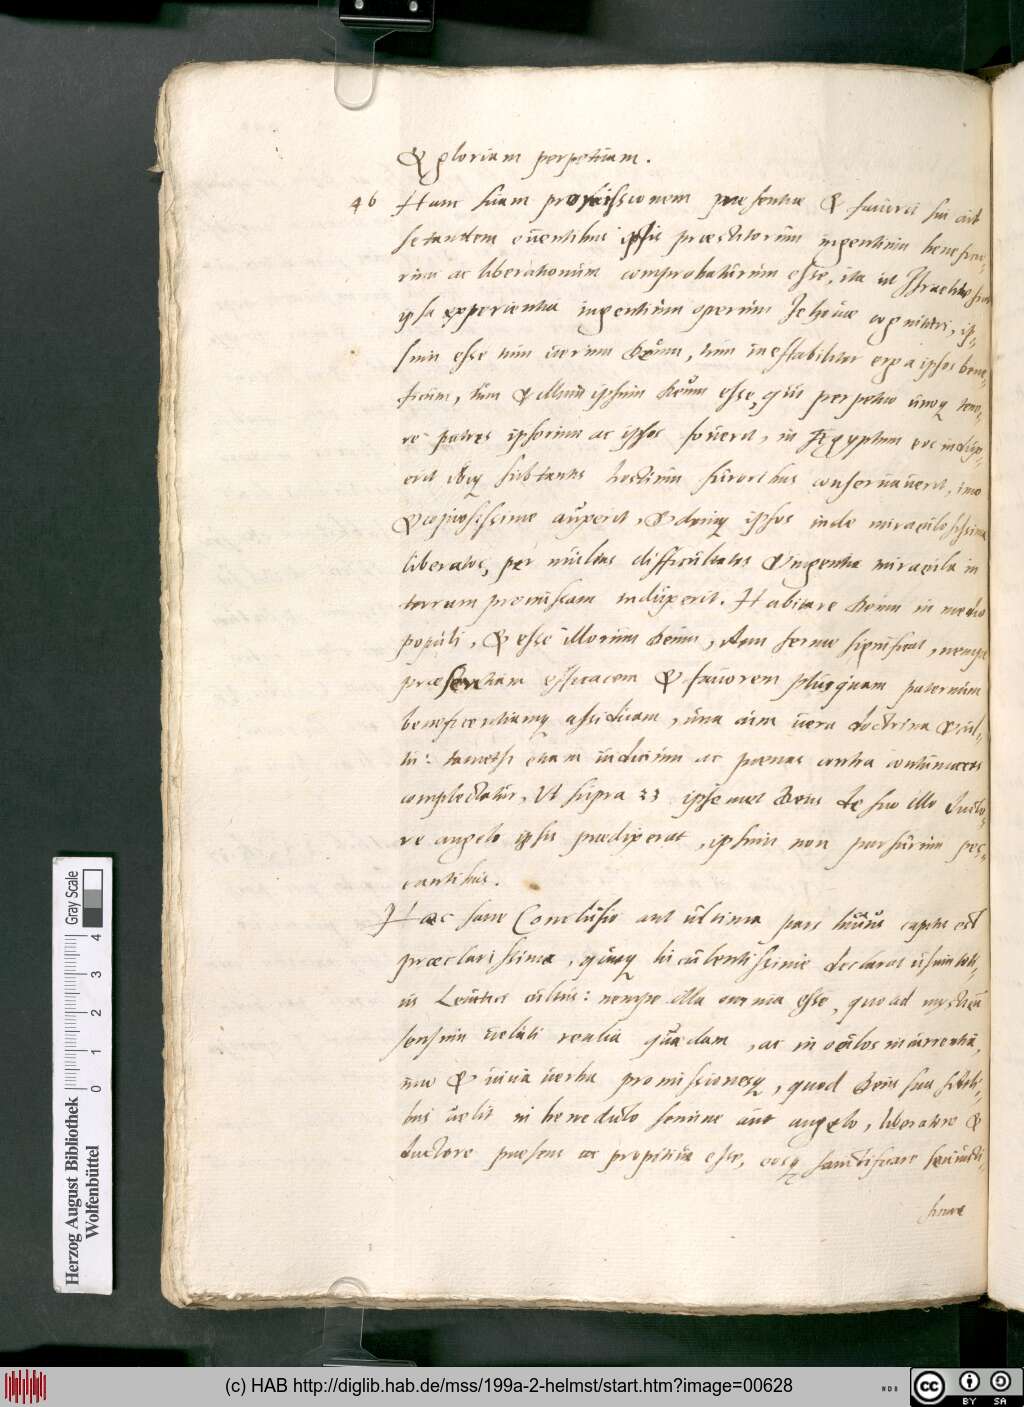 & gloriam perpetuam.
46 Hanc suam promissionem praesentiae & favoris sui ait
se tandem eventibus ipsis praestitorum ingentium benefici-
rum ac liberationum comprobaturum esse, ita ut Israelitae sint
ipsa experientia ingentium operum Jehovae cognituri, ip-
sum esse tum verum Deum, tum ineffabiliter erga ipsos bene-
ficum, tum & illum ipsum Deum esse, qui perpetuo unoq teno-
re patres ipsorum ac ipsos foverit, in Aegyptum eos indux-
erit ibiq sub tantis hostium furoribus conservaverit, imo
& copiosissime auxerit, & deniq ipsos inde miraculosissime
liberatos, per multas difficultates & ingentia miracula in
terram promissam induxerit. Habitare Deum in medio
populi, & esse illorum Deum, idem ferme significat, nempe
praesentiam efficacem & favorem plusquam paternum
beneficentiamq assiduam, una cum vera doctrina & cul-
tu: tametsi etiam iudicium ac poenas contra contumaces
complectatur, Ut supra 23 ipsemet Deus de suo illo ducto-
re angelo ipsis praedixerat, ipsum non parsurum pec-
cantibus.
Haec sane Conclusio aut ultima pars huius capitis est
praeclarissima, quaeq luculentissime declarat usum toti-
us Levitici cultus: nempe illa omnia esse, quo ad mysticum
sensum veluti realia quaedam, ac in oculos incurrentia,
imo & viva verba promissionesq, quod Deus suis fideli-
bus velit in benedicto semine aut angelo, liberatore &
ductore praesens ac propitius esse, eosq sanctificare seu iusti-
ficare
Herzog August Bibliothek
Wolfenbüttel
0 1 2 3 4
Gray Scale
(c) HAB http://diglib.hab.de/mss/199a-2-helmst/start.htm?image=00628
cc BY SA